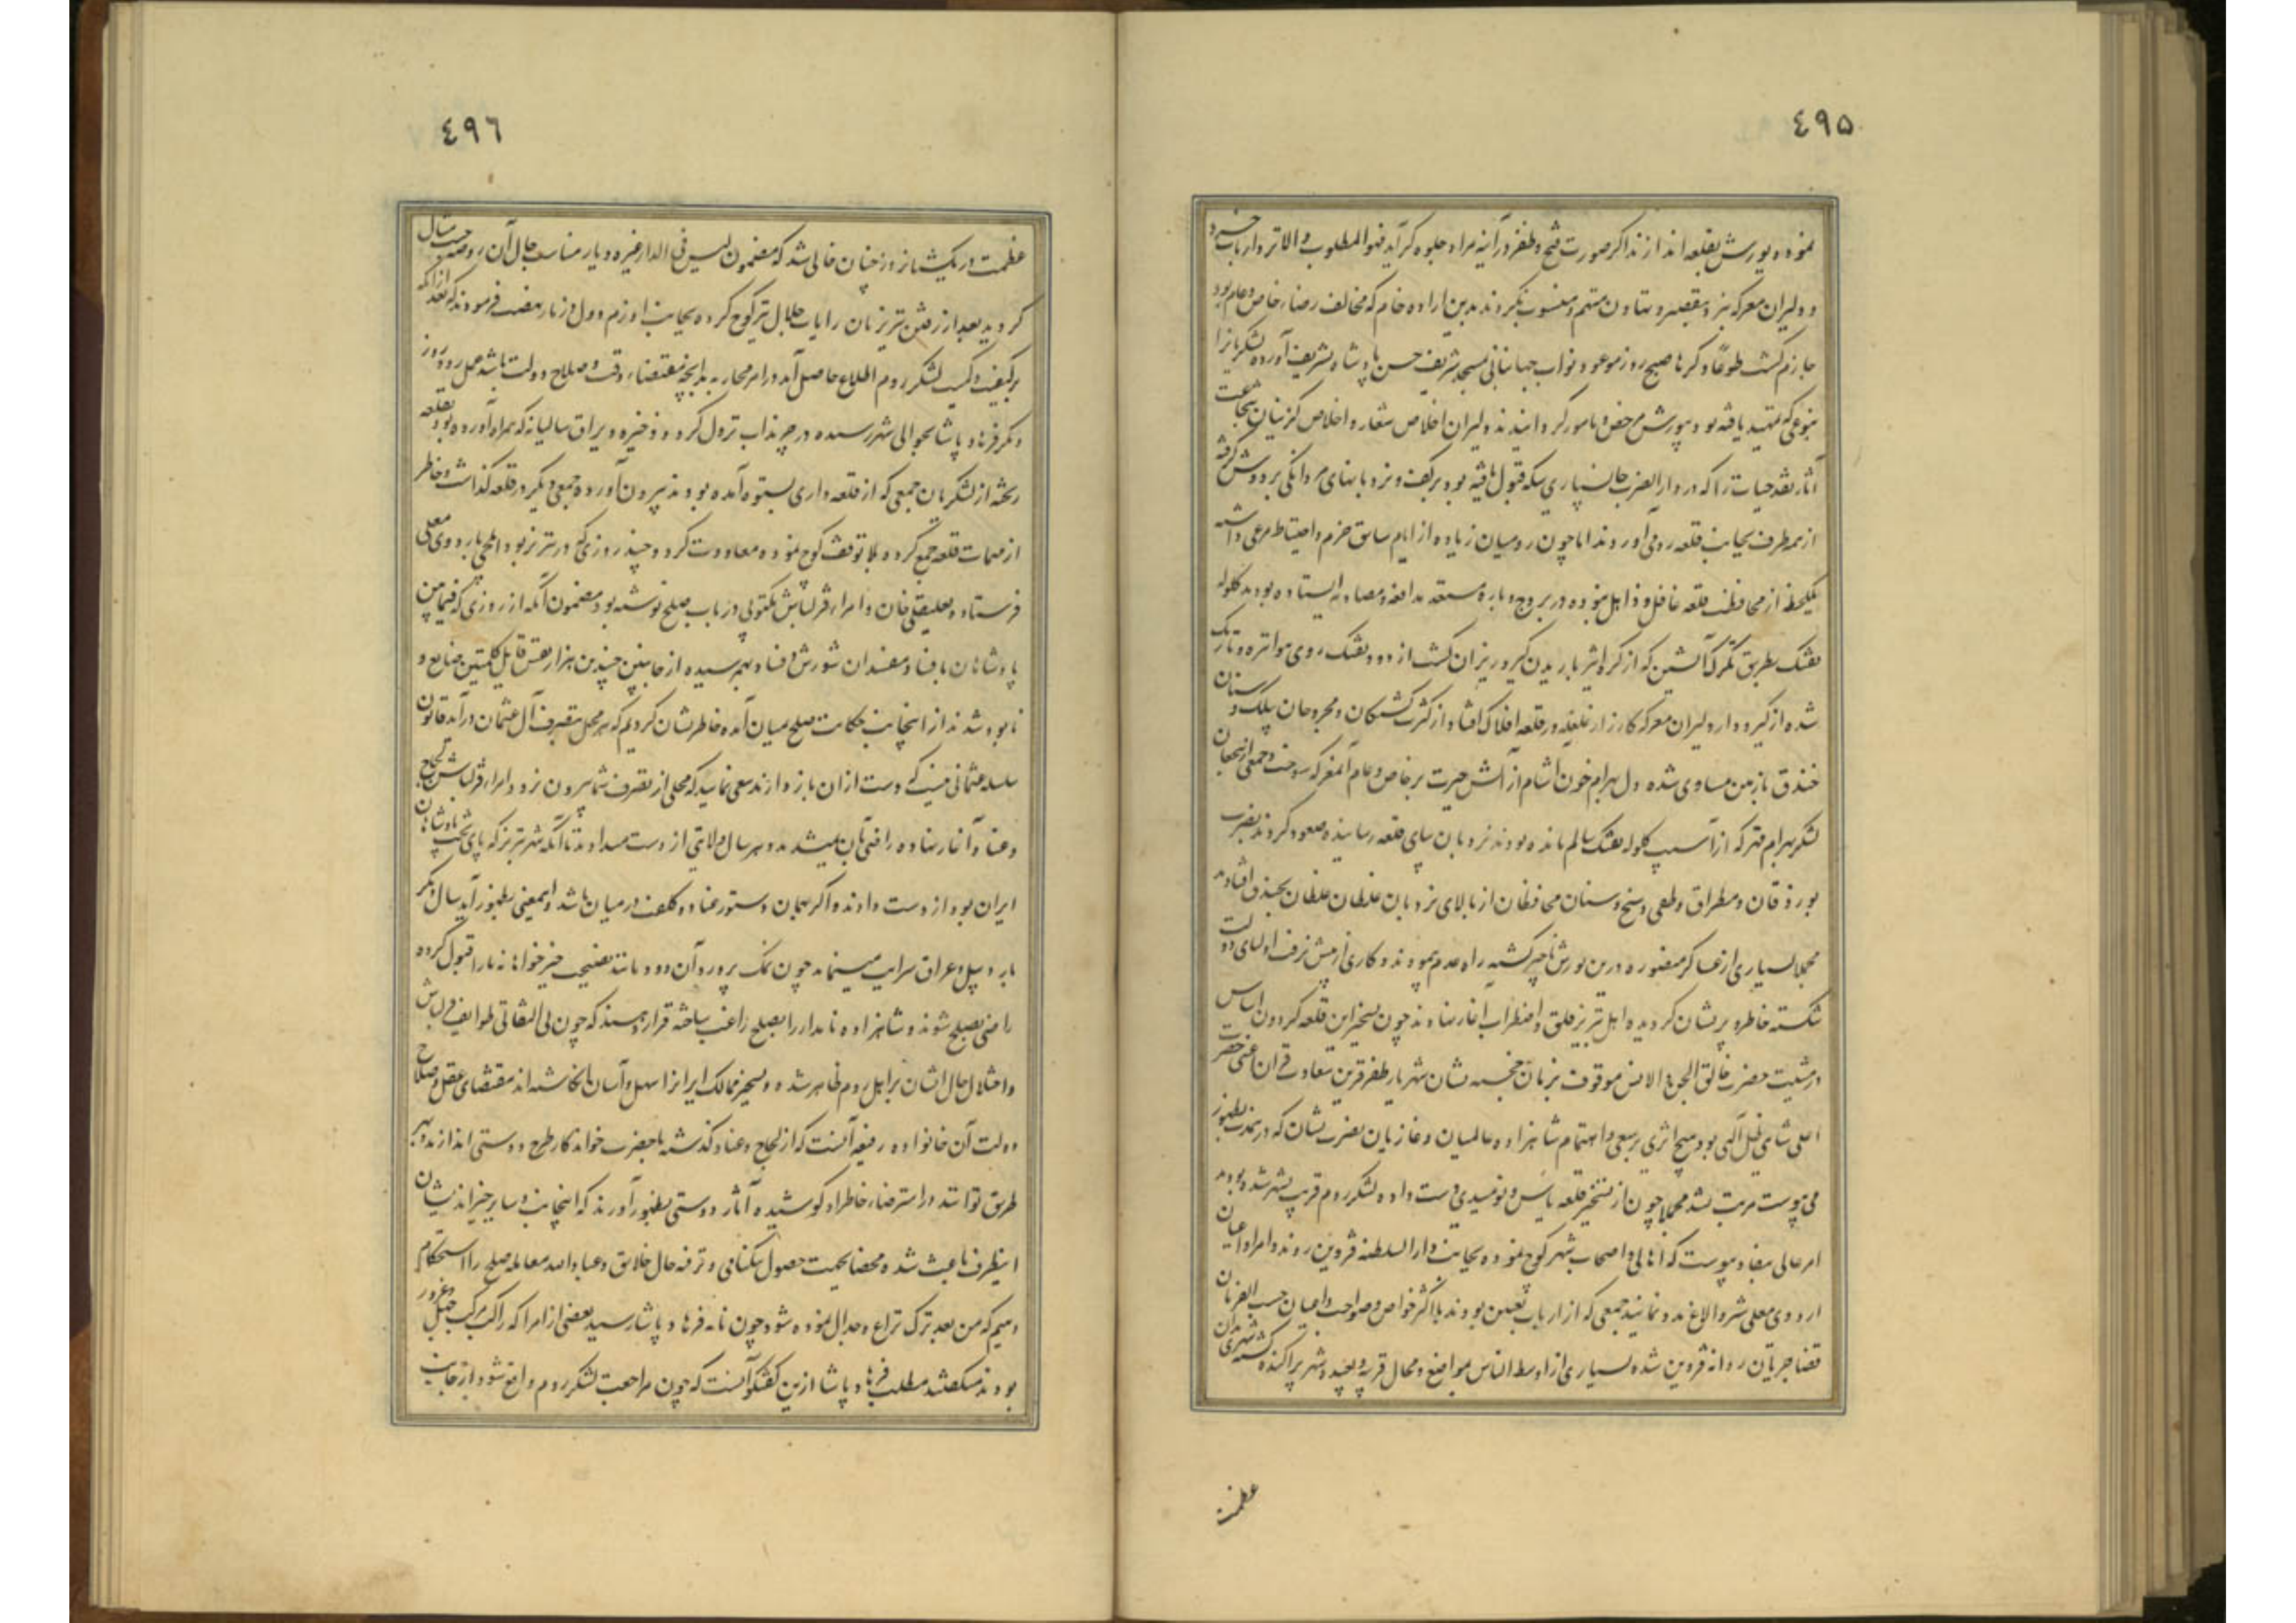 ٤٩٥
نموده و یورش بقلعه اندازند اگر صورت فتح و ظفر در آینه مراد جلوه گر آید فهو المطلوب والا نزد ارباب خبرت
و دلیران معرکه نبرد بتقصیر و تهاون متهم و منسوب نگردند بدین اراده خام که مخالف رضاء خاص و عام بود
جازم گشت طوعا و کرها صبح روز موعود نواب جهانبانی بمسجد شریف حسن پادشاه تشریف آورده لشکریانرا
بنوعی که تمهید یافته بود بیورش مرخص و مامور گردانیدند دلیران اخلاص شعار و اخلاص گزینان شجاعت
آثار نقد حیات را که در دار الضرب جانسپاری سکه قبول یافته بود بر کف و نردبانهای مردانگی بر دوش گرفته
از همه طرف بجانب قلعه روی آوردند اما چون رومیان زیاده از ایام سابق حزم و احتیاط مرعی داشته
یکلحظه از محافظت قلعه غافل و ذاهل نبوده در بروج و باره مستعد مدافعه و مصادمه ایستاده بودند گلوله
تفنک بطریق تگرگ آتشین که از کره اثیر باریدن گیرد ریزان گشت از دود تفنک روی هوا تیره و تاریک
شده از گیرودار دلیران معرکه کارزار غلغله در قلعه افلاک افتاد از کثرت کشتگان و مجروحان
خندق با زمین مساوی شده دل بهرام خون آشام از آتش حیرت بر خاص و عام آنمعرکه سوخت و جمعی از شجعان
لشکر بهرام قهر که از آسیب گلوله تفنک سالم مانده بودند نردبان بپای قلعه رسانیده صعود کردند بضرب
و مطراق و طعن رمح و سنان محافظان از بالای نردبان غلطان غلطان بخندق افتادند
مجملا بسیاری از عساکر منصوره درین یورش ناچیز گشته راه عدم پیمودند و کاری از پیش نرفت اولیای دولت
شکسته خاطر و پریشان گردیده اهل تبریز قلق و اضطراب آغاز نهادند چون تسخیر این قلعه گردون اساس
در مشیت حضرت خالق الجن و الانس موقوف بزمان خجسته نشان شهریار ظفر قرین سعادت قران اعنی حضرت
اعلی شاهی ظل اللهی بود هیچ اثری بر سعی و اهتمام شاهزاده عالمیان و غازیان نصرت نشان که در بمدت بظهور
می پیوست مرتب نشد مجملا چون از تسخیر قلعه یاس و نومیدی دست داد و لشکر روم قریب بشهر شده بودند
امر عالی بنفاذ پیوست که اهالی و اصحاب شهر کوچ نموده بجانب دار السلطنه قزوین روند و امرا و اعیان
اردوی معلی شتر و الاغ مدد نمایند جمعی که از ارباب تعین بودند با اکثر خواص و صواحب و اعیان حسب الفرمان
قضا جریان روانه قزوین شده بسیاری از اوسط الناس بمواضع و محال قریبه و بعیده شهر پراکنده گشته شهری بدان
عظمت
٤٩٦
عظمت در یکشبانروز چنان خالی شد که مضمون لیس فی الدار غیره دیار مناسب حال آن و حسب حال
گردید بعد از رفتن تبریزیان رایات جلال نیز کوچ کرده بجانب اوزم دول و زنار نهضت فرمودند که بعد از آنکه
بر کیفیت و کمیت لشکر روم اطلاع حاصل آید در امر محاربه بدانچه مقتضاء وقت و صلاح دولت باشد عمل رود روز
دیگر فرهاد پاشا بحوالی شهر رسیده در چرنداب نزول کرد و ذخیره و یراق سالیانه که همراه آورده بود بقلعه
ریخته از لشکریان جمعی که از قلعه داری بستوه آمده بودند بیرون آورده جمعی دیگر در قلعه گذاشت و خاطر
از مهمات قلعه جمع کرده بلا توقف کوچ نموده معاودت کرد و چند روزی که در تبریز بود ایلچی باردوی معلی
فرستاده بعلیقلی خان و امراء قزلباش مکتوبی در باب صلح نوشته بود مضمون آنکه از روزی که فیمابین
پادشاهان بافساد مفسدان شورش و فساد بهم رسیده از جانبین چندین هزار نفس قابل کلمتین ضایع و
نابود شدند از اینجانب حکایت صلح بمیان آمده خاطرنشان کردیم که هر محل بتصرف آل عثمان درآید قانون
سلسله عثمانی نیست که دست از آن باز دارند سعی نمایید که محلی از تصرف شما بیرون نرود امراء قزلباش لجاج
و عناد آغاز نهاده راضی بآن نمیشدند و هر سال ولایتی از دست میدادند تا آنکه شهر تبریز که پای تخت پادشاهان
ایران بود از دست دادند و اگر همان دستور عناد و کلفت در میان باشد و همیعنی بظهور آید سال دیگر
باردبیل و عراق سرایت مینماید چون نمک پرورد آن دودمانند نصیحت خیرخواهانه ما را قبول کرده
راضی بصلح شوند و شاهزاده نامدار را بصلح راغب ساخته قرار دهند که چون بی اتفاقی طوایف قزلباش
و اختلال حال ایشان بر اهل روم ظاهر شده و تسخیر ممالک ایرانرا سهل و آسان انگاشته اند مقتضای عقل و صلاح
دولت آن خانواده رفیعه آنست که از لجاج و عناد گذشته با حضرت خواندگار طرح دوستی اندازند و بهر
طریق توانند در استرضاء خاطر او کوشیده آثار دوستی بظهور آورند که اینجانب و سایر خیراندیشان
اینطرف باعث شده محضا بجهت حصول نیکنامی و ترفه حال خلایق و عباد الله معامله صلح را استحکام
دهیم که من بعد ترک نزاع و جدال نموده شود چون نامه فرهاد پاشا رسید بعضی از امرا که راکب مرکب جهل و غرور
بودند میگفتند مطلب فرهاد پاشا ازین گفتگو آنست که چون مراجعت لشکر روم واقع شود از جانب